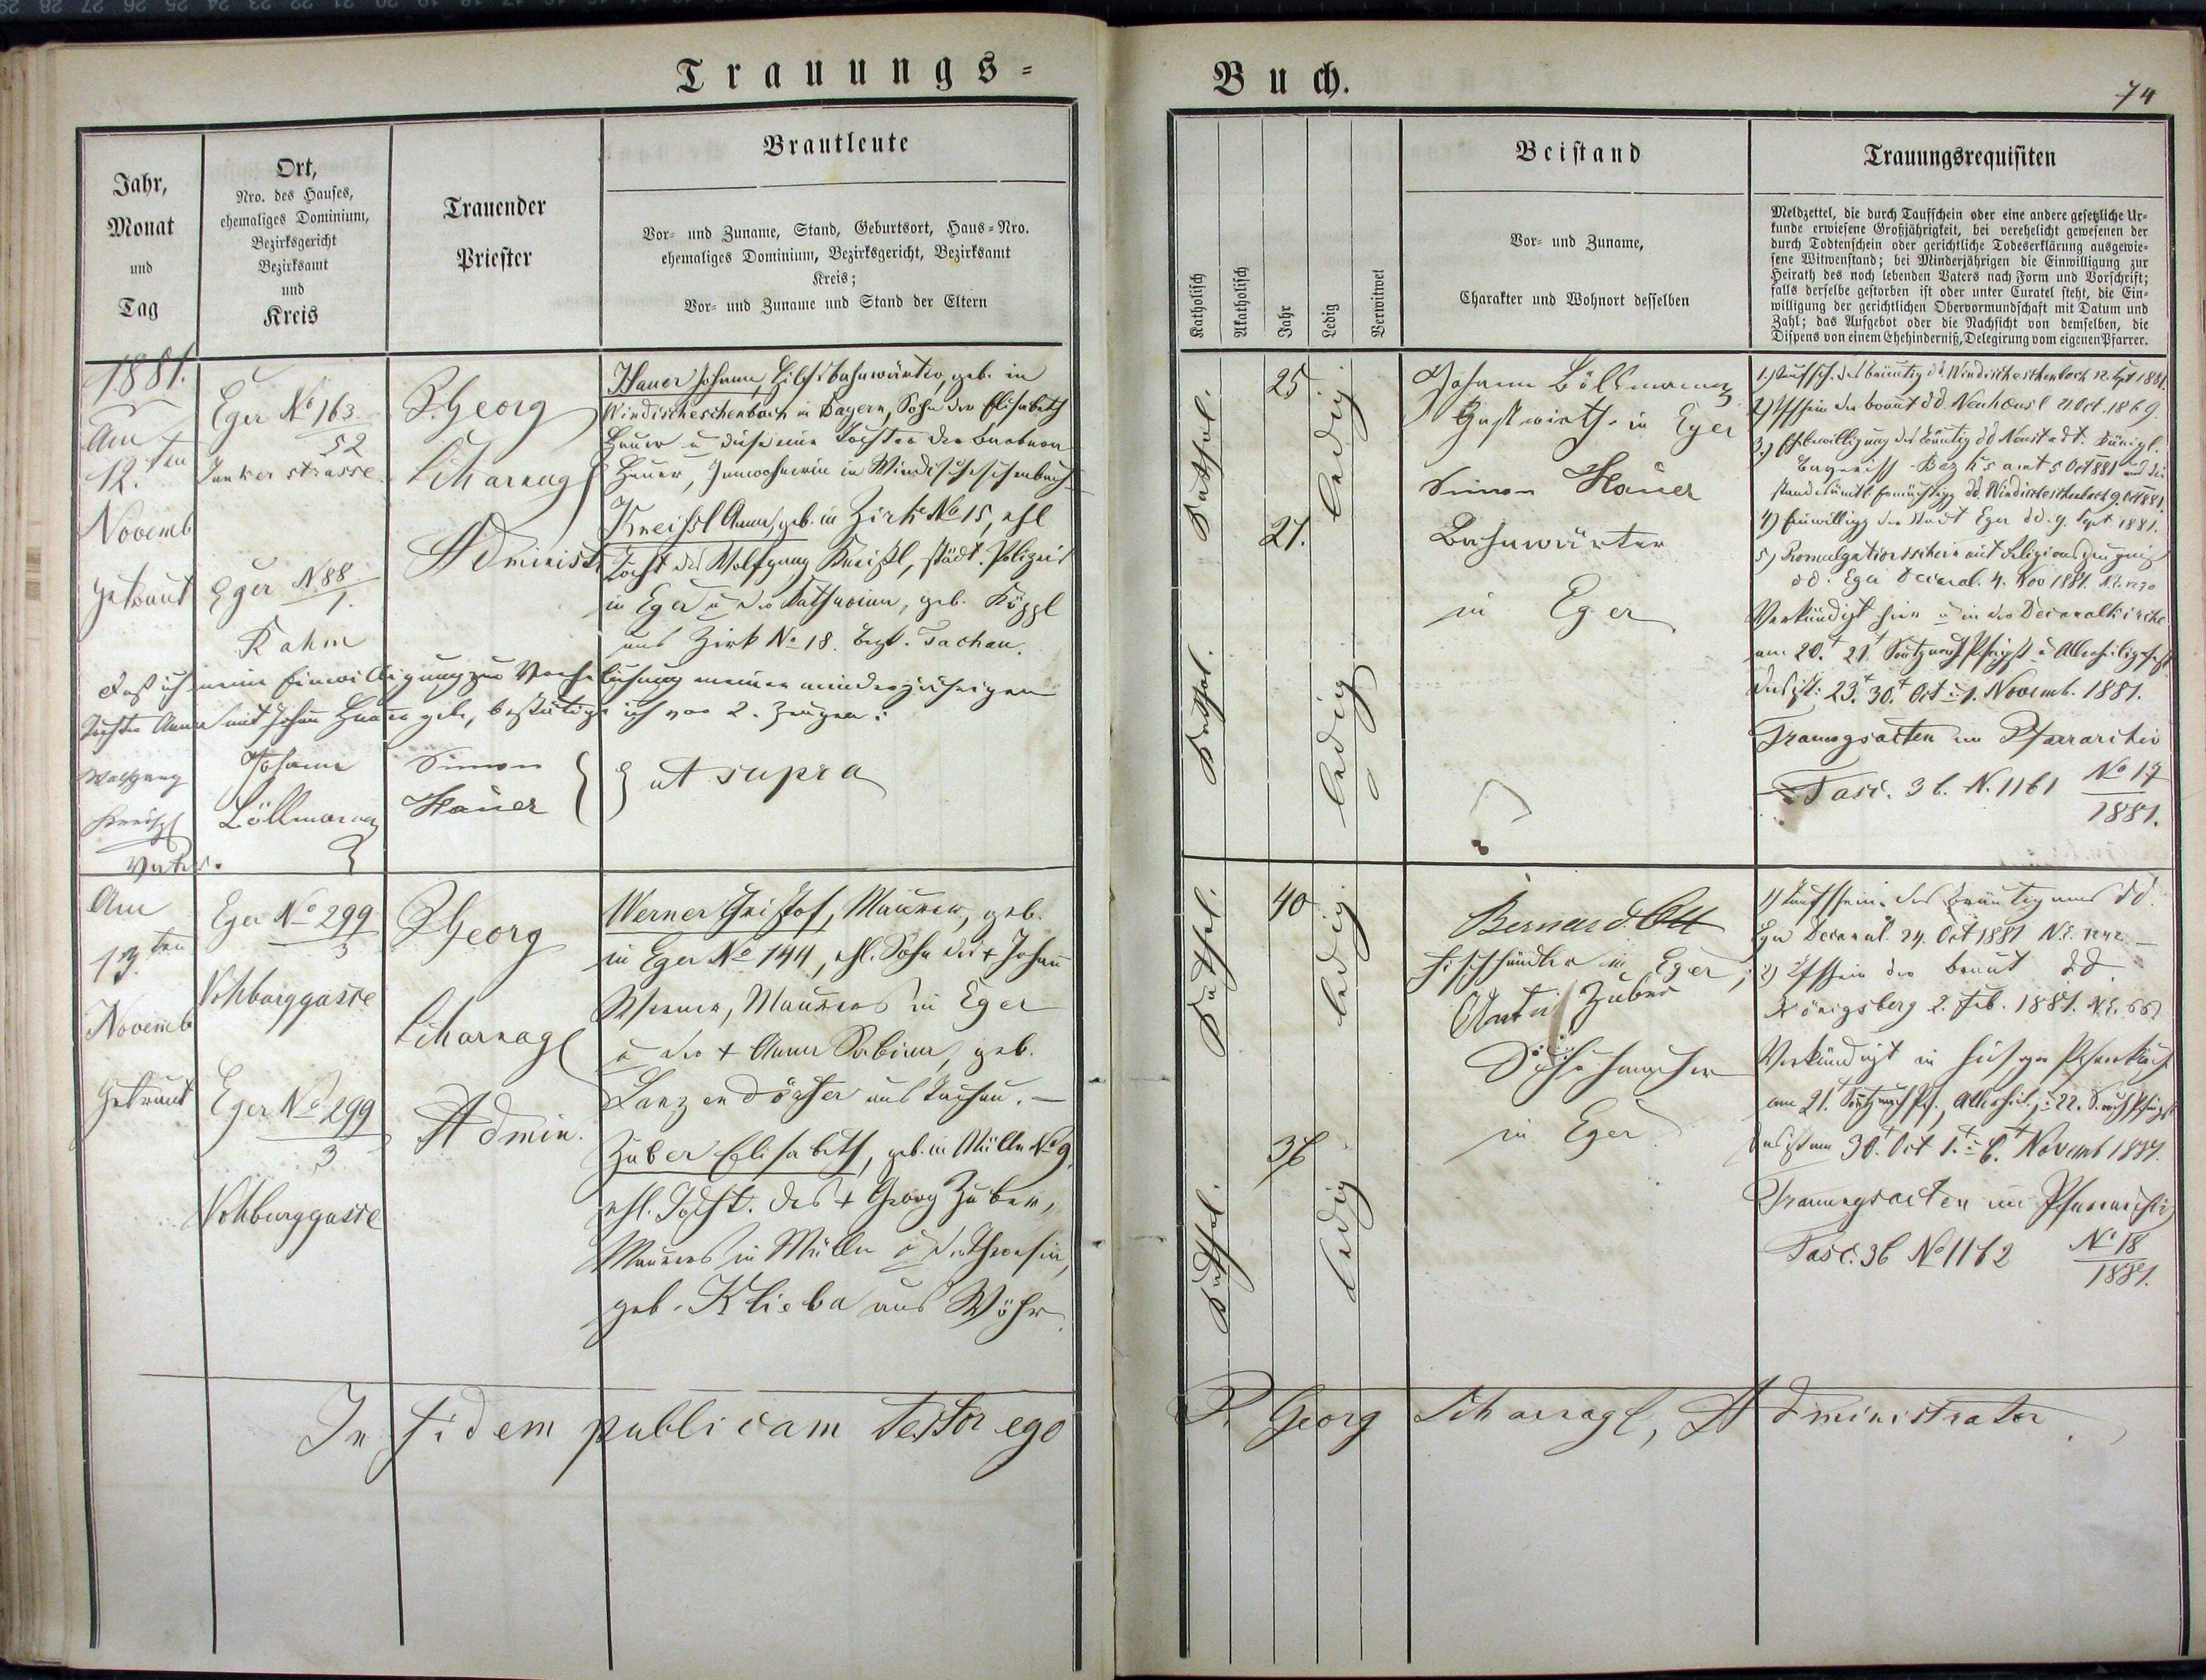 Trauungs-
Buch.
74
Jahr,
Monat
und
Tag
Ort,
Nro. des Hauses,
ehemaliges Dominium,
Bezirksgericht
Bezirksamt
und
Kreis
Trauender
Priester
Brautleute
Vor- und Zuname, Stand, Geburtsort, Haus-Nro.
ehemaliges Dominium, Bezirksgericht, Bezirksamt
Kreis;
Vor- und Zuname und Stand der Eltern
Katholisch
Akatholisch
Jahr
Ledig
Verwitwet
Beistand
Vor- und Zuname,
Charakter und Wohnort desselben
Trauungsrequisiten
Meldzettel, die durch Taufschein oder eine andere gesetzliche Ur-
kunde erwiesene Großjährigkeit, bei verehelicht gewesenen der
durch Todtenschein oder gerichtliche Todeserklärung ausgewie-
sene Witwenstand; bei Minderjährigen die Einwilligung zur
Heirath des noch lebenden Vaters nach Form und Vorschrift;
falls derselbe gestorben ist oder unter Curatel steht, die Ein-
willigung der gerichtlichen Obervormundschaft mit Datum und
Zahl; das Aufgebot oder die Nachsicht von demselben, die
Dispens von einem Ehehinderniß, Delegirung vom eigenen Pfarrer.
1881.
Am
12.ten
Novemb
getraut
Eger No 163
52
Junkerstrasse
Eger N. 88
1.
Rahm
P. Georg
Scharnagl
Administr
Hauer Johann, Hilfsbahnwärter, geb. in
Windischeschenbach in Bayern, Sohn der Elisabeth
Hauer u diese eine Tochter der Barbara
Hauer, Inwohnerin in Windischeschenbach
Kneißl Anna, geb. in Zirk No 15, ehl
Tocht des Wolfgang Kneißl, städt. Polizei
in Eger u der Katharina, geb. Köppl
aus Zirk No 18. Bez. Tachau.
Daß ich meine Einwilligung zur Verehelichung meiner minderjährigen
Tochter Anna mit Johann Hauer gebe, bestätige ich vor 2. Zeugen:
Wolfgang
Kneißl
Vater.
Johann
Löllmann
Simon
Hauer
ut supra
Kathol.
25
ledig
Kathol.
21.
ledig
Johann Löllmann
Gastwirth in Eger
Simon Hauer
Bahnwärter
in Eger
1.) Taufsch. des Bräutig dd. Windischeschenbach 12. Spt 1881
2) Tfschein der Braut dd. Neuhäusl 21. Oct. 1869
3.) Ehebewilligung des Bräutig dd Neustadt. Königl.
Bayerisch. Bezksamt 5 Oct 881 und die
dd. Windischeschenbach 9. Oct 881.
4) Einwilligg der Stadt Eger dd. 9. Sept 1881.
5) Promulgationsschein mit Religionszeugniß
dd. Eger Decanal. 4. Nov 1881.
Verkündigt hier u in der Decanalkirche
am 20.t 21.t Sontg nach Pfingst u Allerheiligenfest
das ist: 23.t 30.t Oct u 1. Novemb. 1881.
Trauungsacten im Pfarrarchiv
Fasc. 36. N. 1161 No 17
1881.
Am
13.ten
Novemb
Getraut
Eger No 299
3
Vohburggasse
Eger No 299
3
Vohburggasse
P Georg
Scharnagl
Admin.
Werner Christof, Maurer, geb.
in Eger No 144, ehl. Sohn des † Johann
Werner, Maurers in Eger
u der † Anna Sabina, geb.
Lanzendörfer aus Tachau. —
Zuber Elisabeth, geb. in Mülln No 9,
ehl. Tocht. des † Georg Zuber,
Maurers in Mülln u der Theresia,
geb. Klieba aus Wöhr.
Kathol.
40
ledig
Kathol.
36
ledig
Bernard Ott
Fischhändler in Eger;
Anton Zuber
Schuhmacher
in Eger
1) Taufschein des Bräutigams dd.
Eger Decanal. 24. Oct 1881 N.E. 1242. —
2) Tfschein der Braut dd.
Königsberg 2. Feb. 1881.
Verkündigt in hiesiger Pfarrkirch
am 21. Sontg nach Pf., Allerheil., u 22. S. nach Pfingst
das ist am 30.t Oct 1.t u 6.t Novemb 1881.
Trauungsacten im Pfarrarchiv
Fasc. 36 No 1162 No 18
1881.
In fidem publicam testor ego
P. Georg Scharnagl, Administrator.